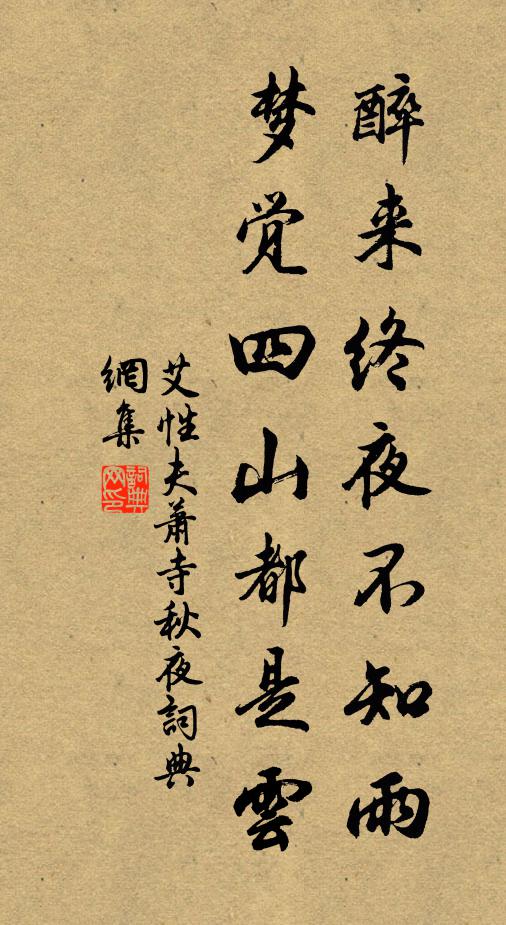 醉来终夜不知雨
梦觉四山都是雲
艾性夫萧寺秋夜詞典
網集
詞典
网印